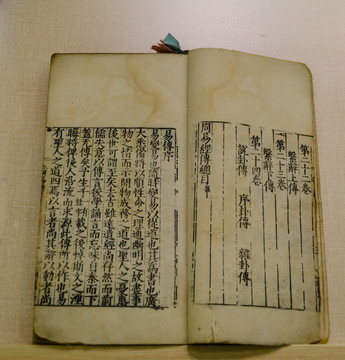 第二十二卷
繫辭上傳
第二十三卷
繫辭下傳
第二十四卷
說卦傳 序卦傳 雜卦傳
周易經傳總目
易傳序
易變易也隨時變易以從道也其為書也廣
大悉備將以順性命之理通幽明之故盡事
物之情而示開物成務之道也聖人之憂患
後世可謂至矣去古雖遠遺經尚存然而前
儒失意以傳言後學誦言而忘味自秦而下
蓋无傳矣予生千載之後悼斯文之湮
晦將俾後人沿流而求源此傳所以作也易
有聖人之道四焉以言者尚其辭以動者尚